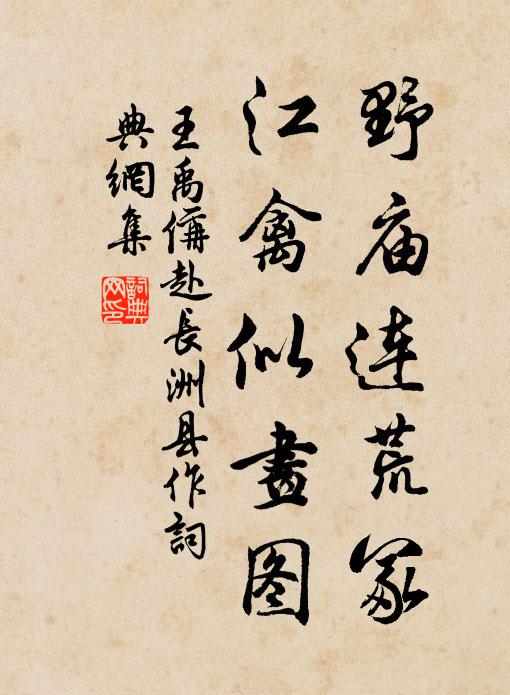 野庙连荒冢
江禽似畫图
王禹偁赴長洲县作詞
典網集
詞典
网印